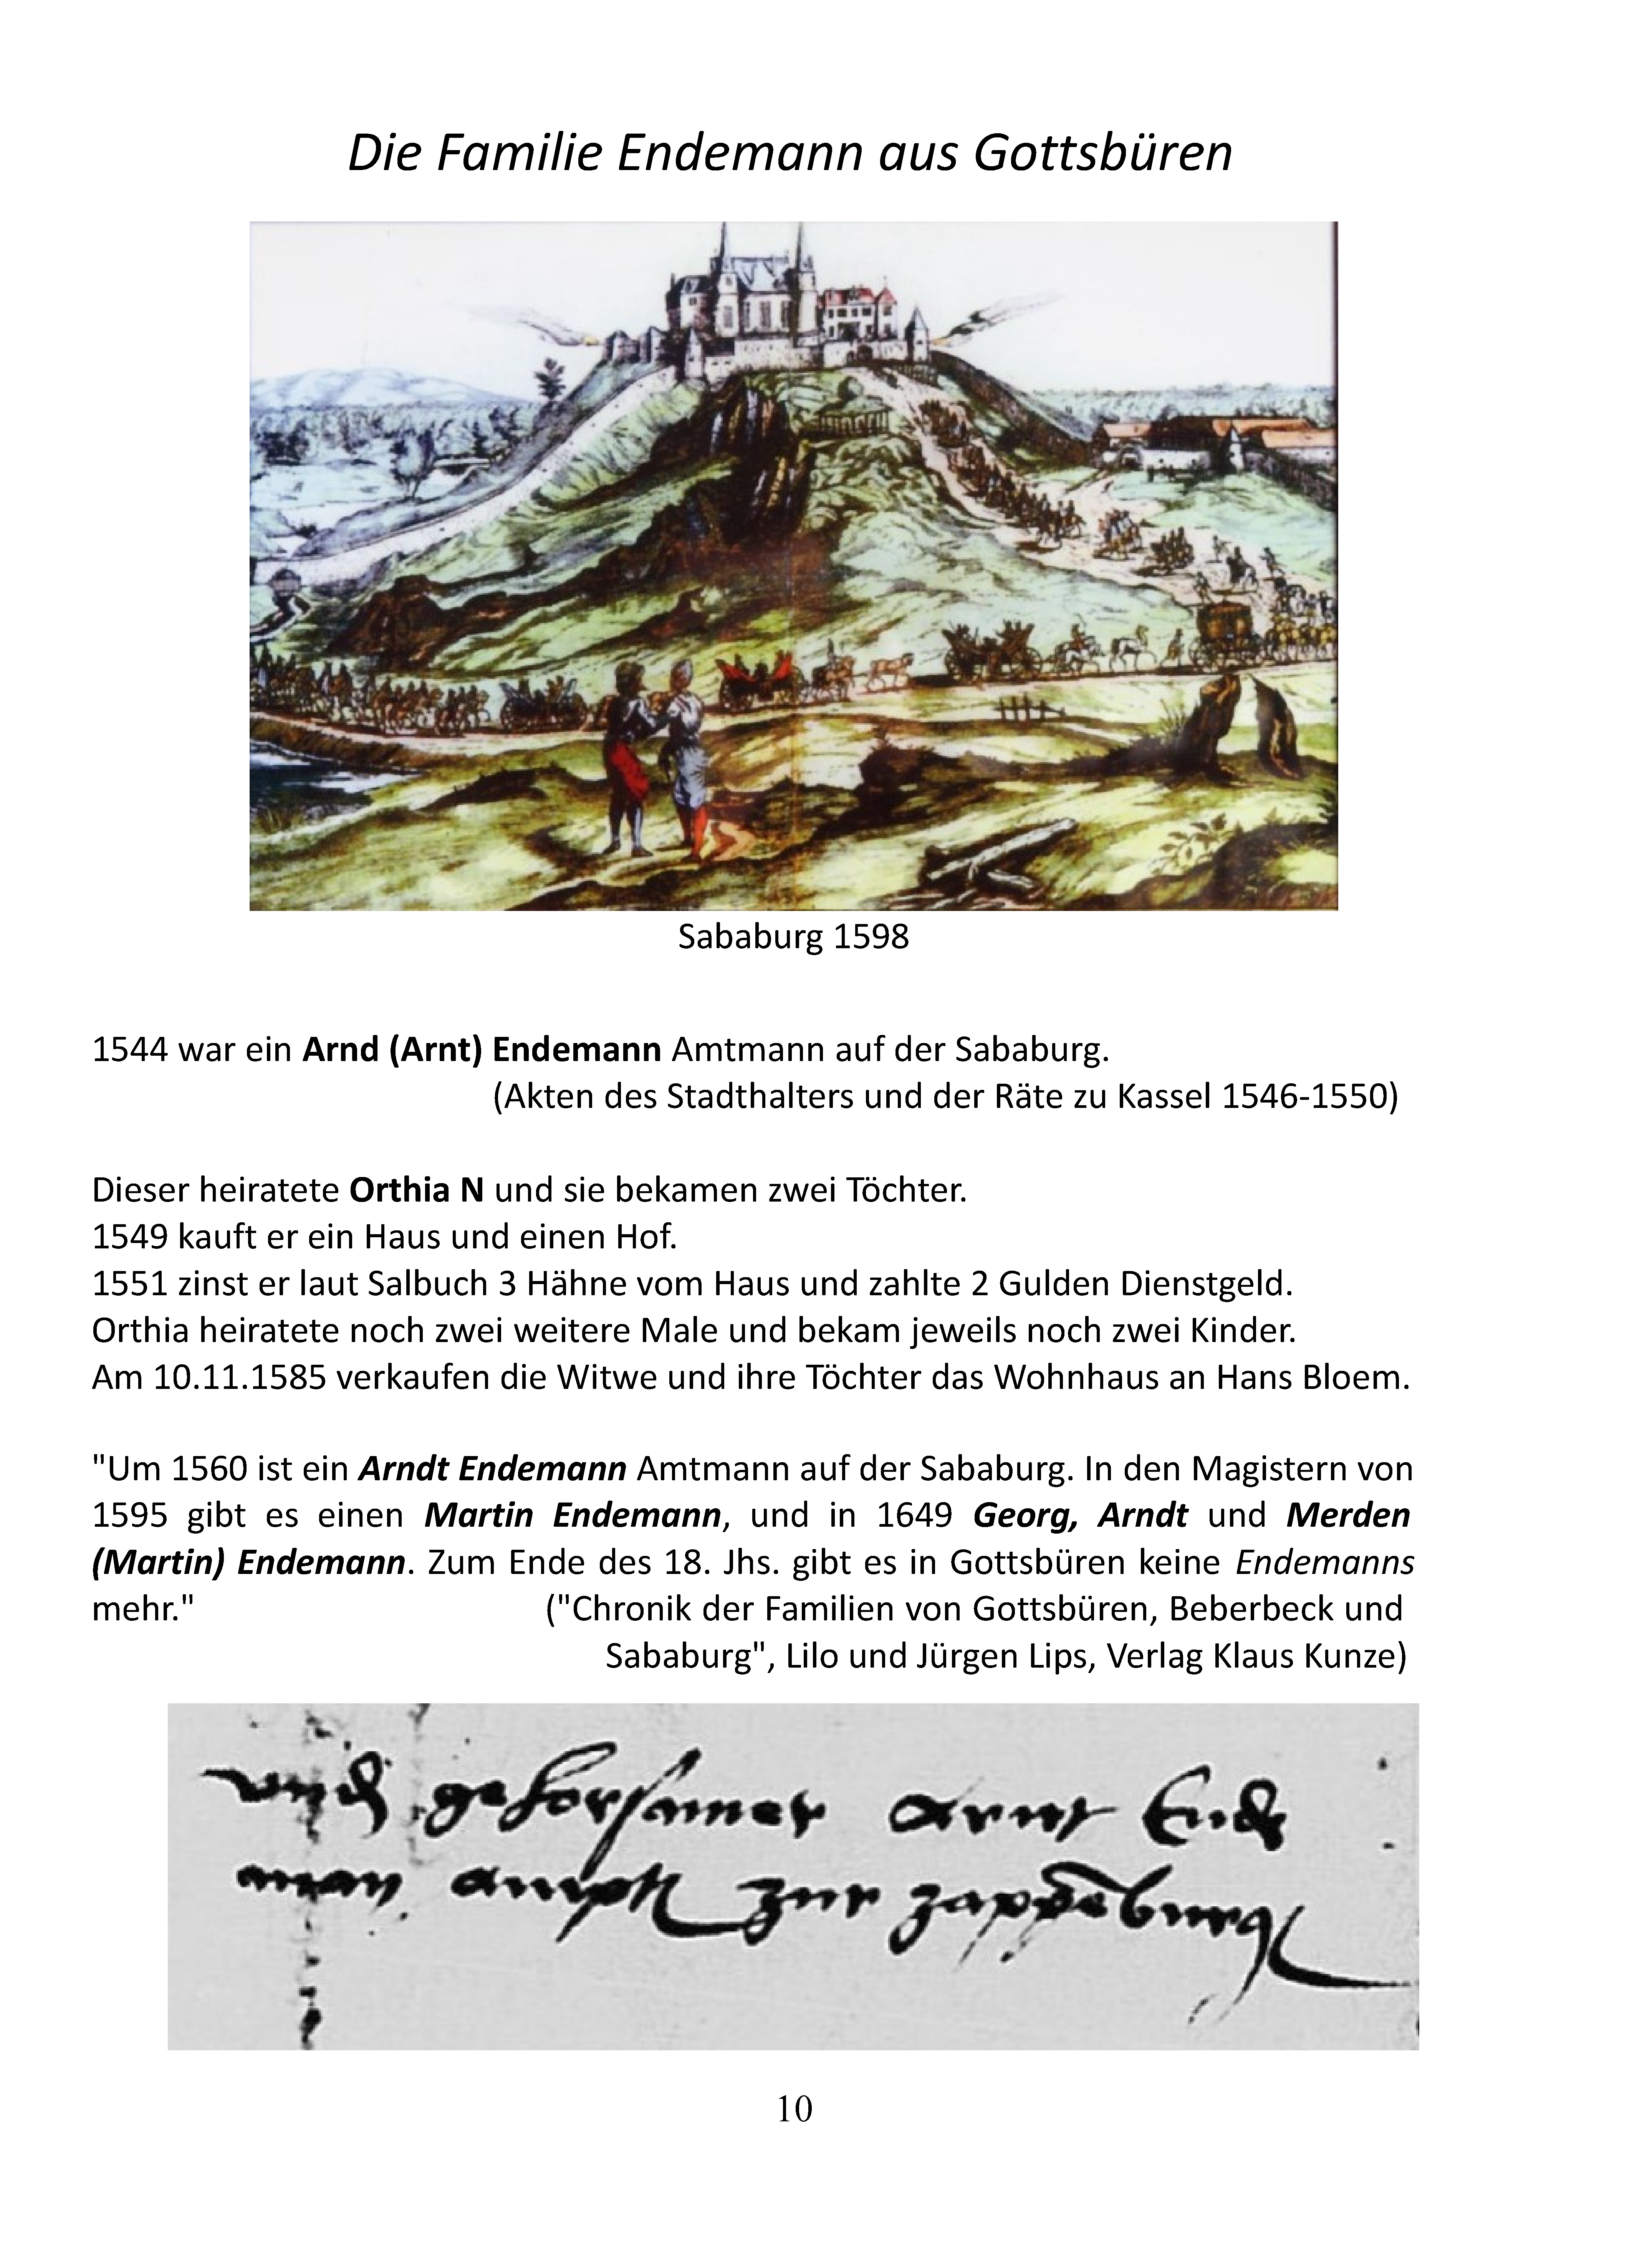 Die Familie Endemann aus Gottsbüren
Sababurg 1598
1544 war ein Arnd (Arnt) Endemann Amtmann auf der Sababurg.
(Akten des Stadthalters und der Räte zu Kassel 1546-1550)
Dieser heiratete Orthia N und sie bekamen zwei Töchter.
1549 kauft er ein Haus und einen Hof.
1551 zinst er laut Salbuch 3 Hähne vom Haus und zahlte 2 Gulden Dienstgeld.
Orthia heiratete noch zwei weitere Male und bekam jeweils noch zwei Kinder.
Am 10.11.1585 verkaufen die Witwe und ihre Töchter das Wohnhaus an Hans Bloem.
"Um 1560 ist ein Arndt Endemann Amtmann auf der Sababurg. In den Magistern von
1595 gibt es einen Martin Endemann, und in 1649 Georg, Arndt und Merden
(Martin) Endemann. Zum Ende des 18. Jhs. gibt es in Gottsbüren keine Endemanns
mehr." ("Chronik der Familien von Gottsbüren, Beberbeck und
Sababurg", Lilo und Jürgen Lips, Verlag Klaus Kunze)
gehorsamer arnt Ende
man zur
10